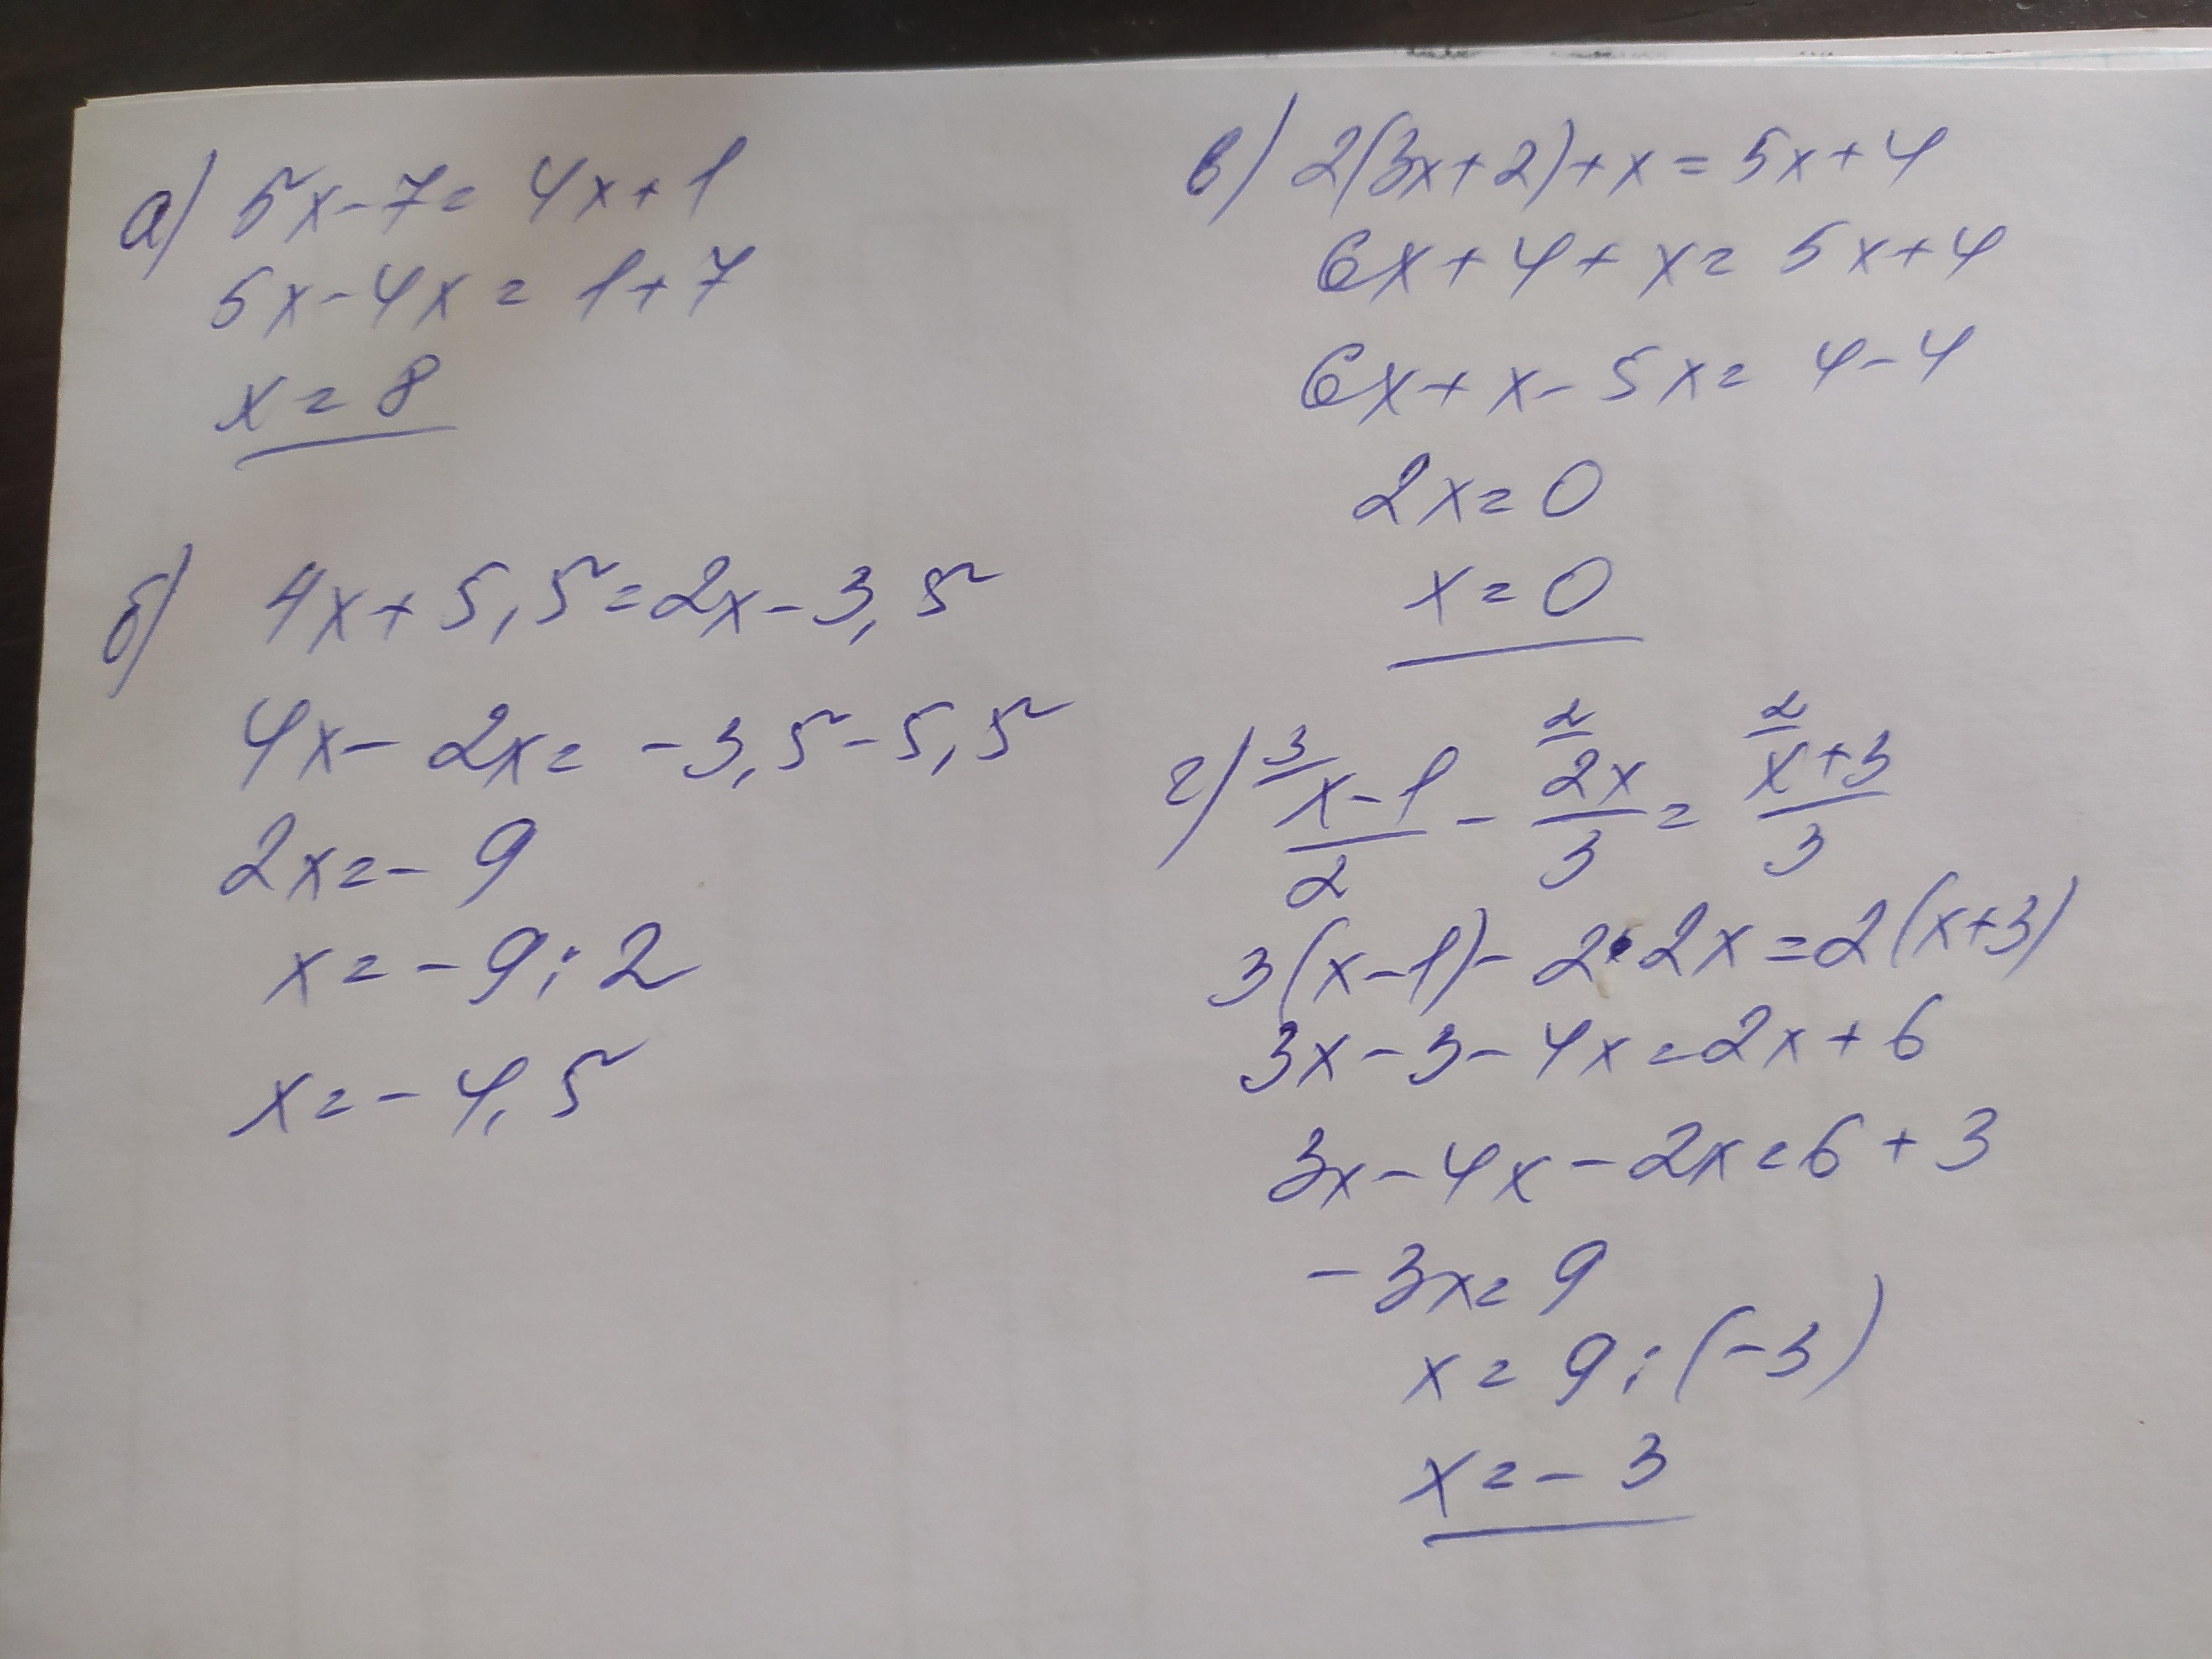 а) 5x-7=4x+1
5x-4x=1+7
x=8
б) 4x+5,5=2x-3,5
4x-2x=-3,5-5,5
2x=-9
x=-9:2
x=-4,5
в) 2(3x+2)+x=5x+4
6x+4+x=5x+4
6x+x-5x=4-4
2x=0
x=0
3 2 2
г) x-1 - 2x = x+3
2 3 3
3(x-1)-2·2x=2(x+3)
3x-3-4x=2x+6
3x-4x-2x=6+3
-3x=9
x=9:(-3)
x=-3